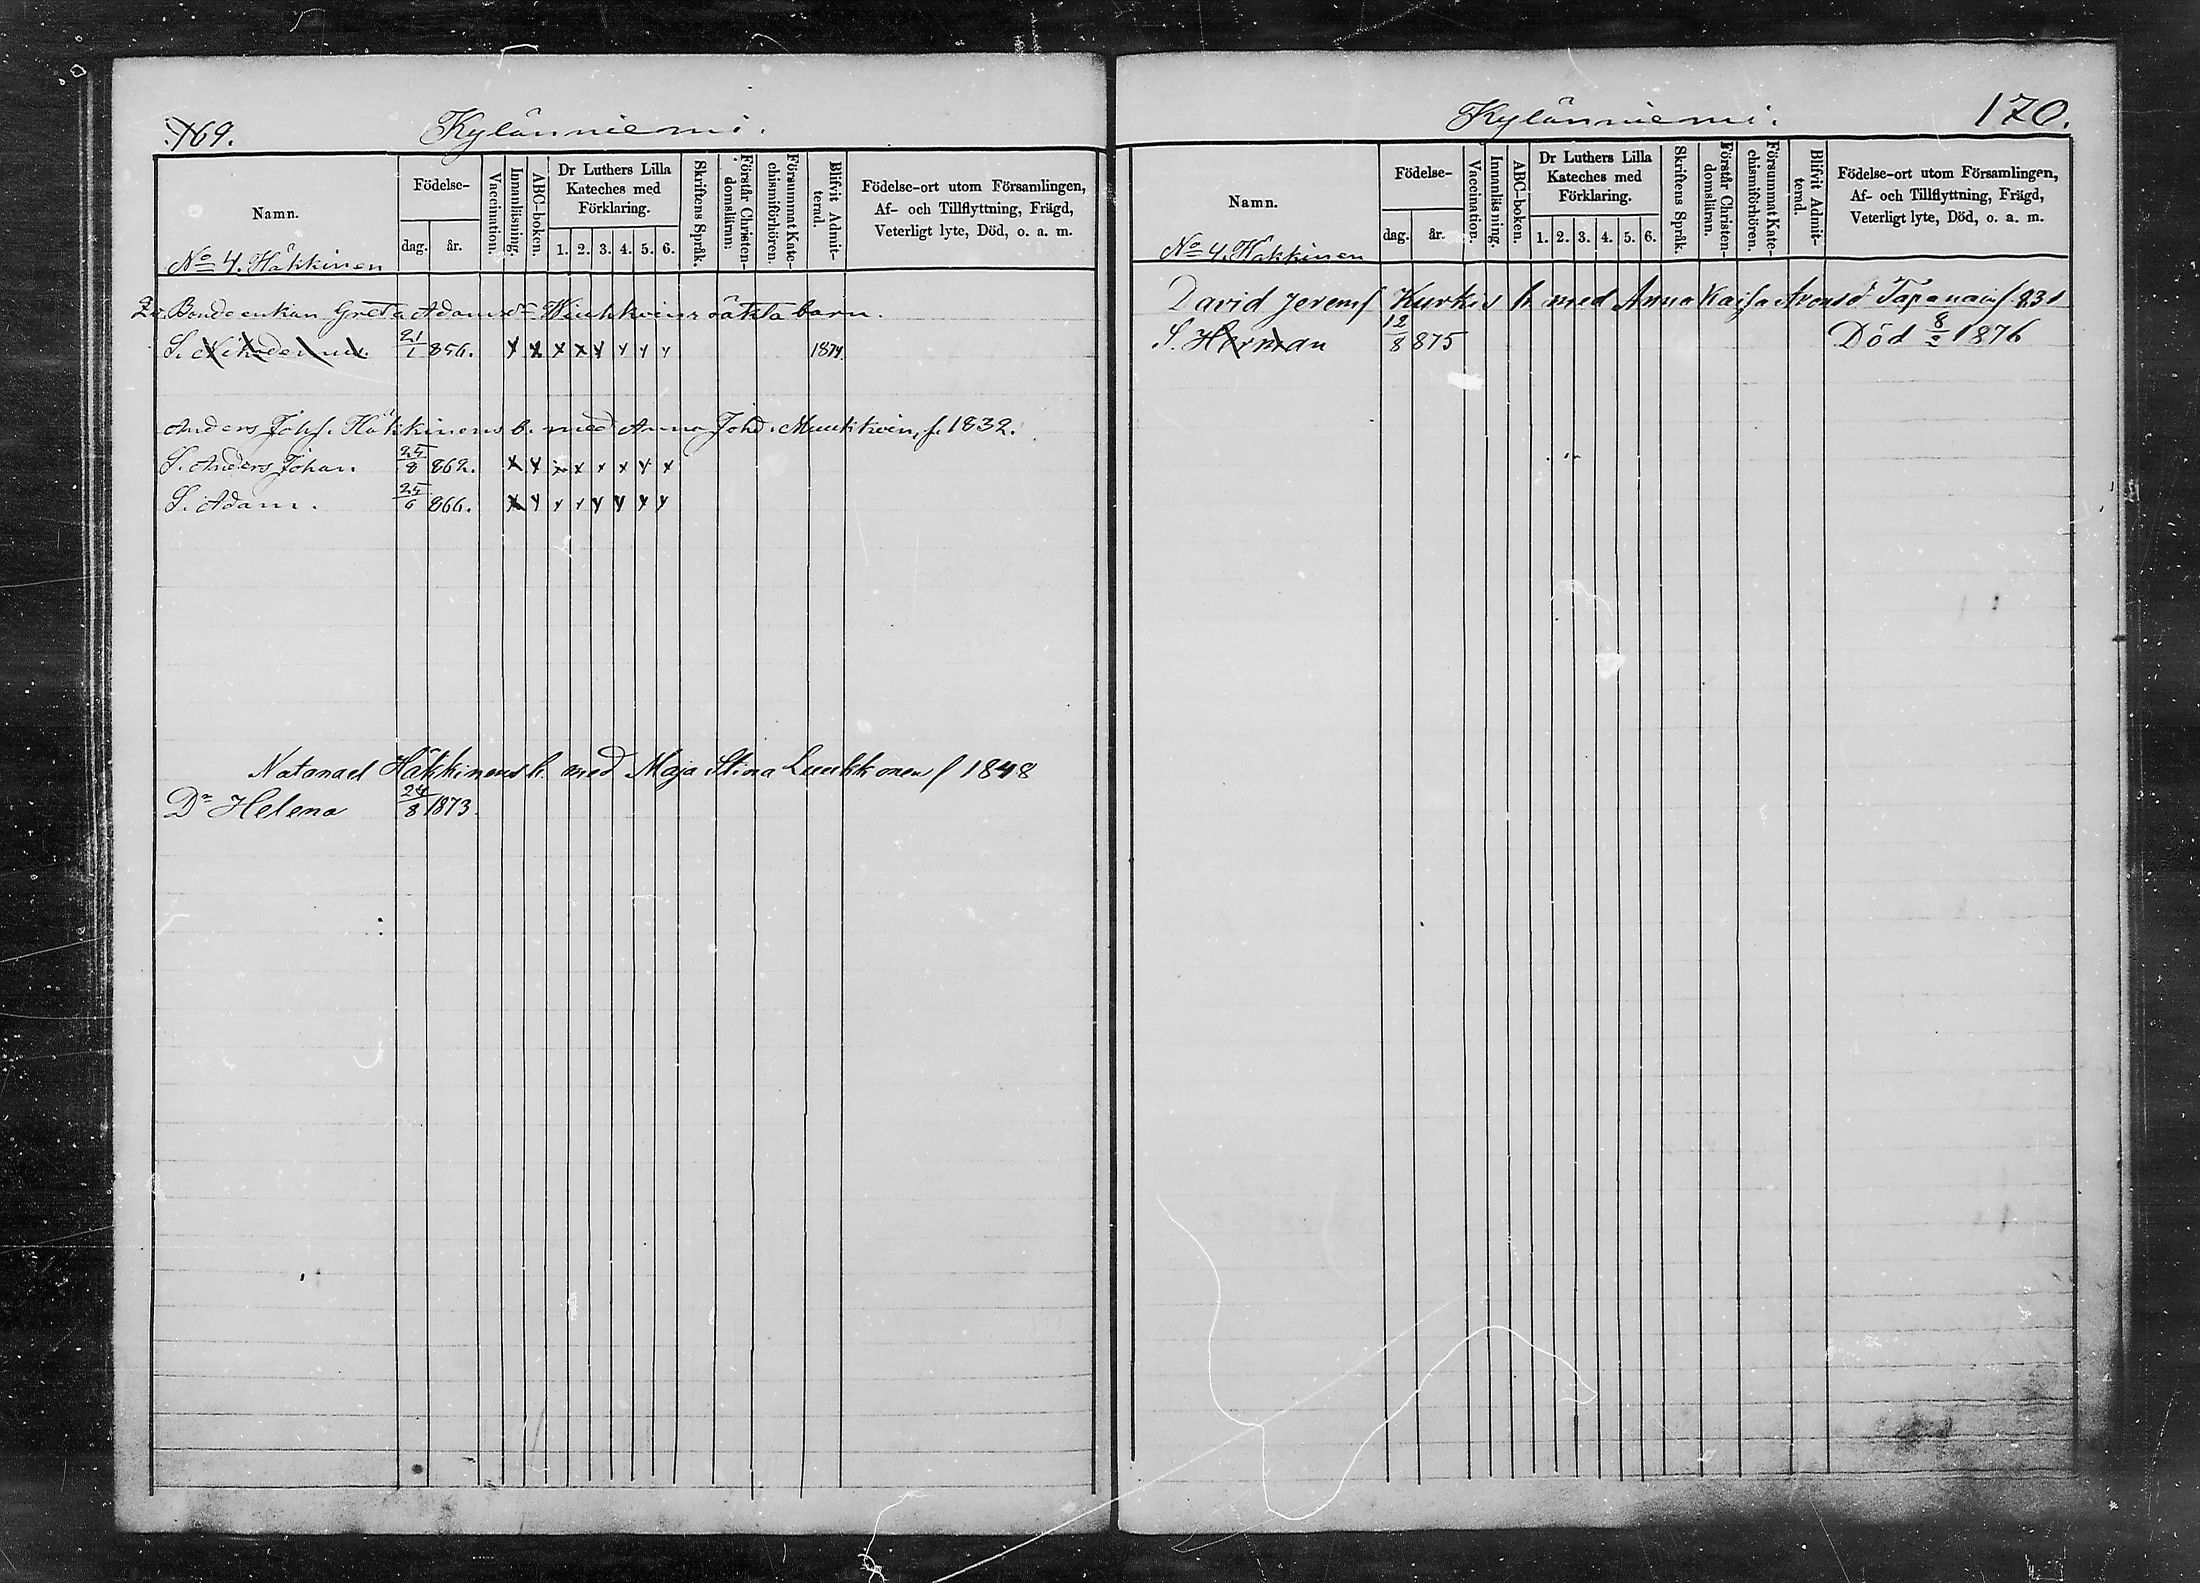 169.
Kylänniemi.
Namn.
Födelse-
dag.
år.
Vaccination.
Innanläsning.
ABC-boken.
Dr Luthers Lilla
Kateches med
Förklaring.
1. 2. 3. 4. 5. 6.
Skriftens Språk.
Förstår Christen-
domsläran.
Försummat Kate-
chismiförhören.
Blifvit Admit-
terad.
Födelse-ort utom Församlingen,
Af- och Tillflyttning, Frägd,
Veterligt lyte, Död, o. a. m.
No 4. Häkkinen
Bondeenkan Greta Adamsdr oäkta barn.
S. Nikodemus. 21/1 856. x x x x x y y y 1874
Anders Johs. Häkkinens b. med Anna Johd. f. 1832.
S. Anders Johan 24/8 862. x x x x x x x x
S. Adam. 25/6 866. x y y y y y y y
Natanael Häkkinens b. med Maja Stina Luukkonen f 1848
Dr Helena 24/8 1873.
Kylänniemi.
170.
Namn.
Födelse-
dag.
år.
Vaccination.
Innanläsning.
ABC-boken.
Dr Luthers Lilla
Kateches med
Förklaring.
1. 2. 3. 4. 5. 6.
Skriftens Språk.
Förstår Christen-
domsläran.
Försummat Kate-
chismiförhören.
Blifvit Admit-
terad.
Födelse-ort utom Församlingen,
Af- och Tillflyttning, Frägd,
Veterligt lyte, Död, o. a. m.
No 4. Häkkinen
David Jeremf Kurkis b med Anna Kajsa Aronsd Tapanain f. 831
S. Herman 12/8 875 Död 8/2 1876